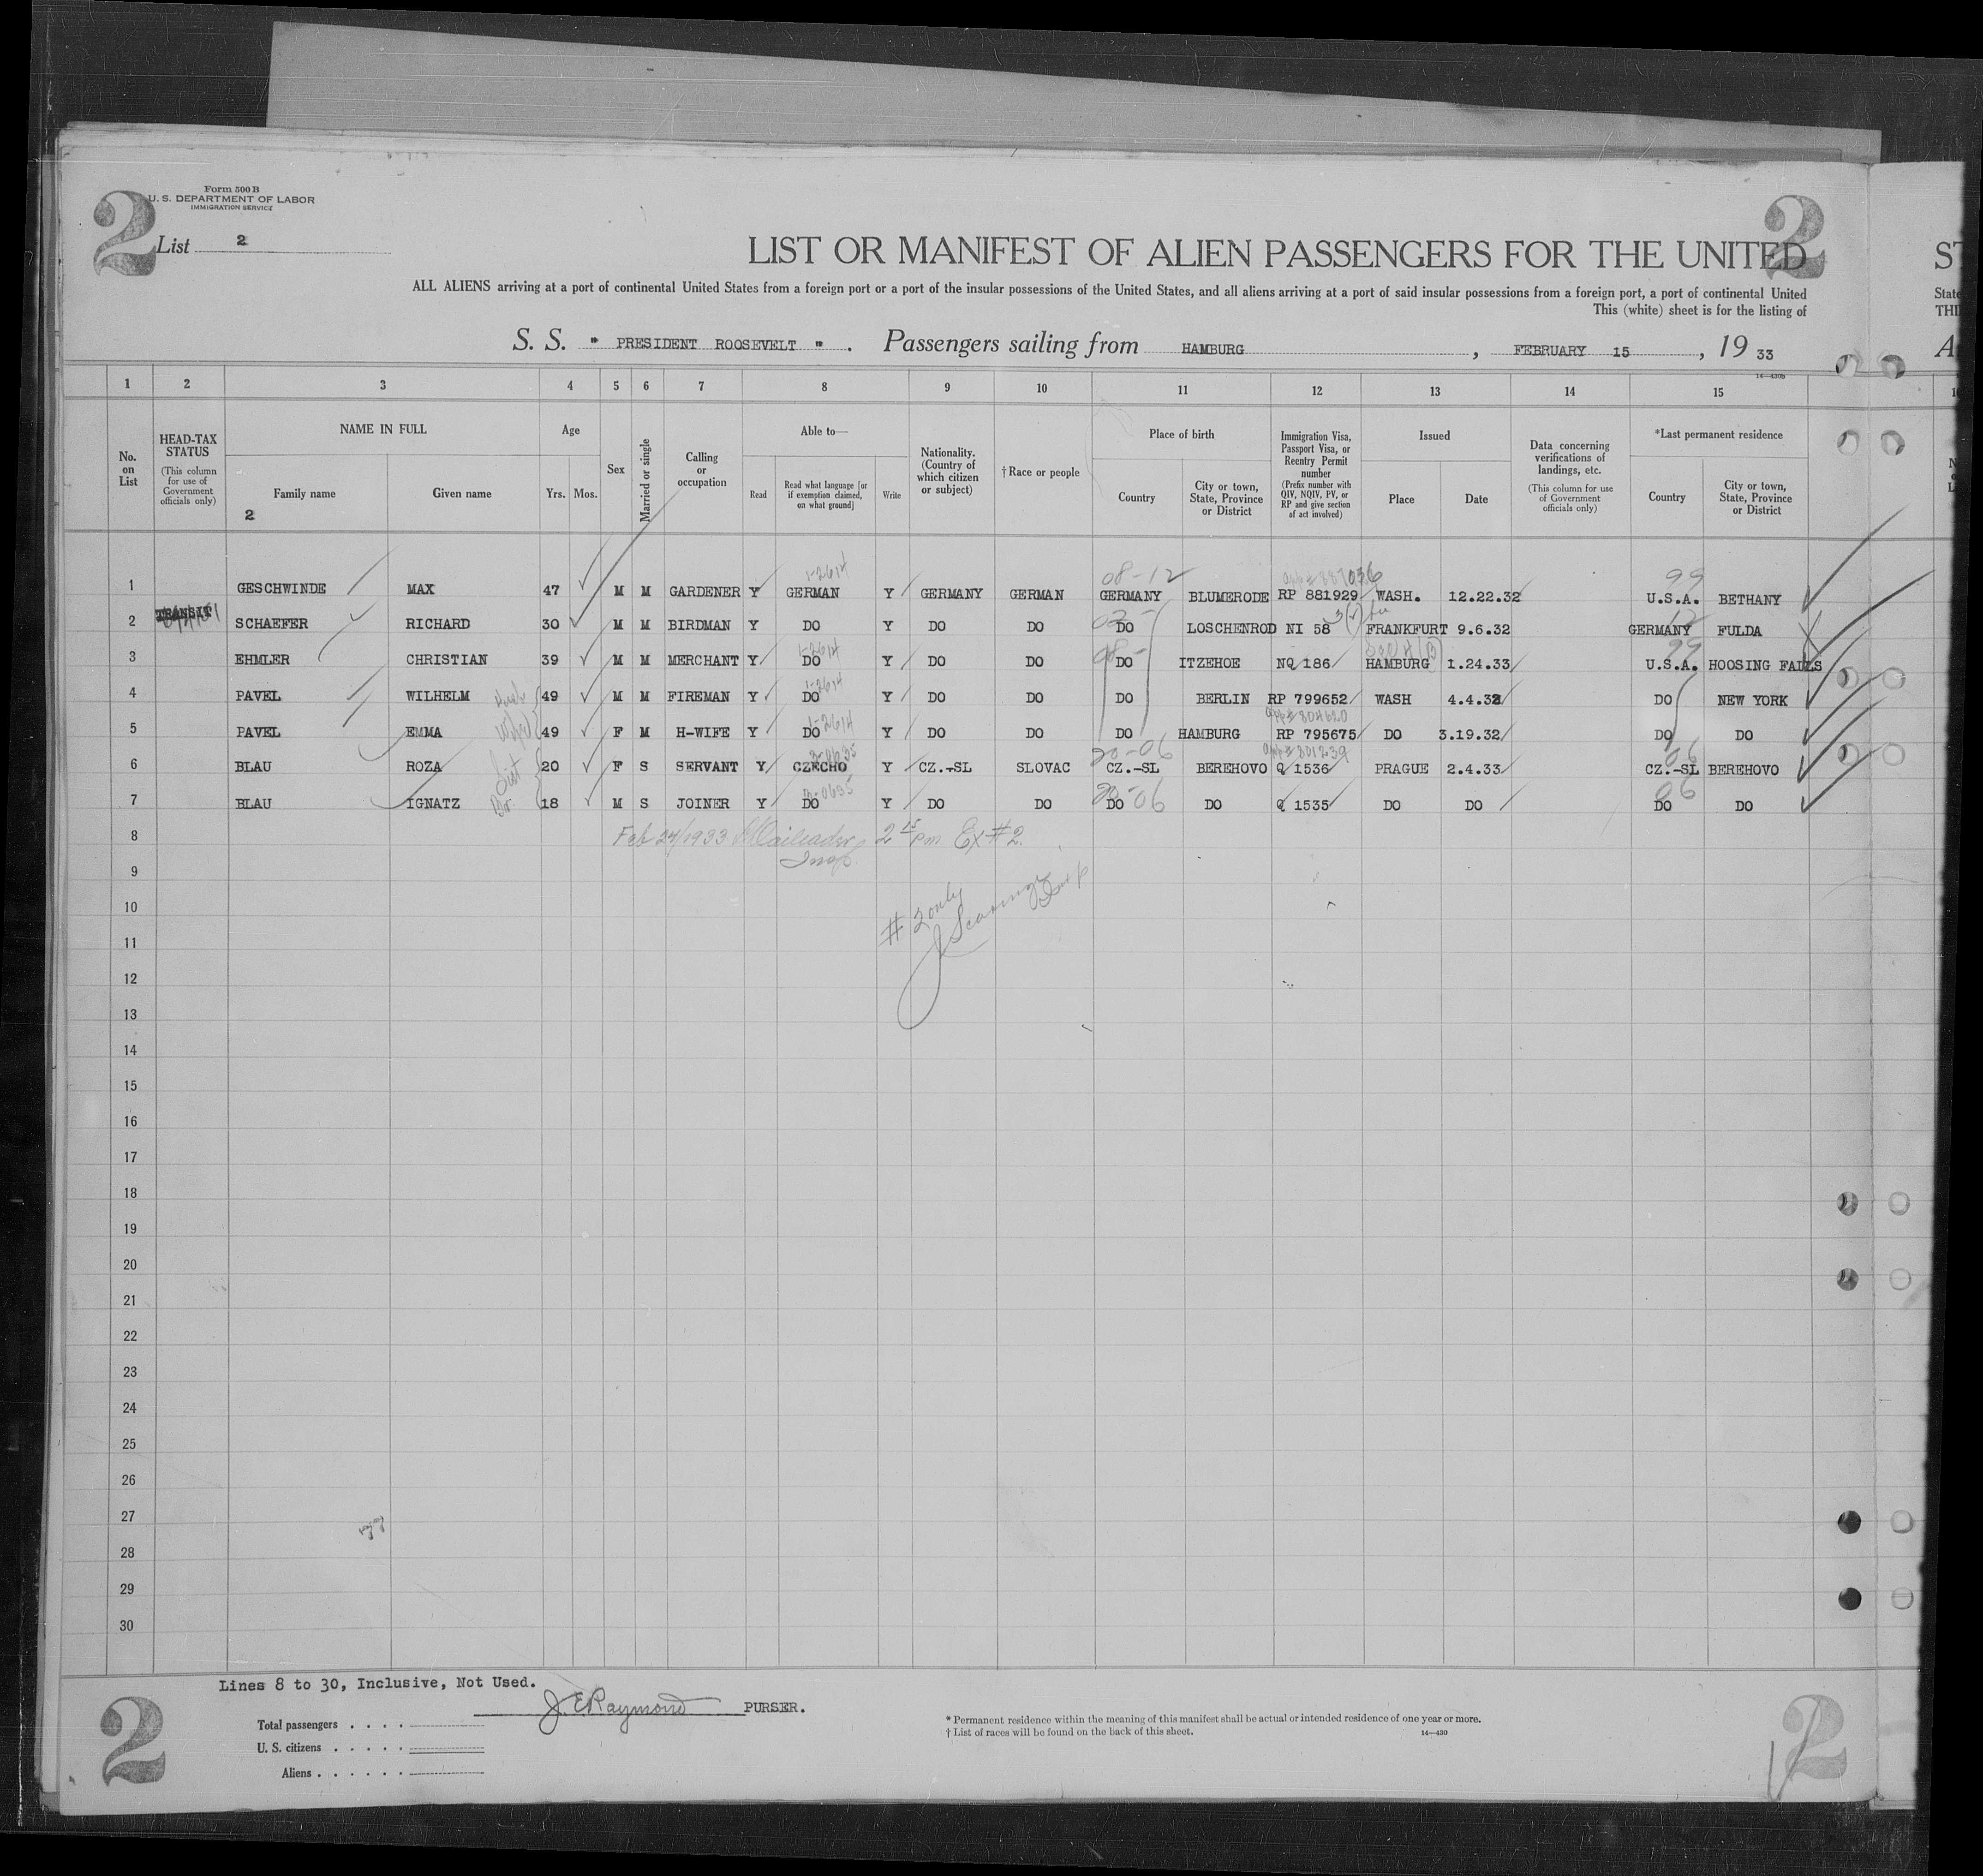 Form 500 B
U. S. DEPARTMENT OF LABOR
IMMIGRATION SERVICE
2
2
List 2
LIST OR MANIFEST OF ALIEN PASSENGERS FOR THE UNITED
ST
ALL ALIENS arriving at a port of continental United States from a foreign port or a port of the insular possessions of the United States, and all aliens arriving at a port of said insular possessions from a foreign port, a port of continental United
State
This (white) sheet is for the listing of
THI
S. S. " PRESIDENT ROOSEVELT " . Passengers sailing from HAMBURG , FEBRUARY 15 , 19 33
A
14—430b
1 2 3 4 5 6 7 8 9 10 11 12 13 14 15
No. on List
HEAD-TAX STATUS (This column for use of Government officials only)
NAME IN FULL
Family name
2
Given name
Age
Yrs. Mos.
Sex
Married or single
Calling or occupation
Able to—
Read
Read what language [or if exemption claimed, on what ground]
Write
Nationality. (Country of which citizen or subject)
† Race or people
Place of birth
Country
City or town, State, Province or District
Immigration Visa, Passport Visa, or Reentry Permit number (Prefix number with QIV, NQIV, PV, or RP and give section of act involved)
Issued
Place
Date
Data concerning verifications of landings, etc. (This column for use of Government officials only)
*Last permanent residence
Country
City or town, State, Province or District
1-2614 08-12 99
1 GESCHWINDE MAX 47 M M GARDENER Y GERMAN Y GERMANY GERMAN GERMANY BLUMERODE RP 881929 WASH. 12.22.32 U.S.A. BETHANY
2 TRANSIT SCHAEFER RICHARD 30 M M BIRDMAN Y DO Y DO DO DO LOSCHENROD NI 58 FRANKFURT 9.6.32 GERMANY FULDA
1-2614 99
3 EHMLER CHRISTIAN 39 M M MERCHANT Y DO Y DO DO DO ITZEHOE NQ 186 HAMBURG 1.24.33 U.S.A. HOOSING FALLS
1-2614
4 PAVEL WILHELM 49 M M FIREMAN Y DO Y DO DO DO BERLIN RP 799652 WASH 4.4.32 DO NEW YORK
1-2614
5 PAVEL EMMA 49 F M H-WIFE Y DO Y DO DO DO HAMBURG RP 795675 DO 3.19.32 DO DO
20-06 06
6 BLAU ROZA 20 F S SERVANT Y CZECHO Y CZ.-SL SLOVAC CZ.-SL BEREHOVO Q 1536 PRAGUE 2.4.33 CZ.-SL BEREHOVO
20-06 06
7 BLAU IGNATZ 18 M S JOINER Y DO Y DO DO DO DO Q 1535 DO DO DO DO
8 Feb 24/1933 2 15 pm Ex #2
Insp
9
10 # 2 only
11
12
13
14
15
16
17
18
19
20
21
22
23
24
25
26
27
28
29
30
Lines 8 to 30, Inclusive, Not Used.
J. E. Raymond PURSER.
Total passengers . . . .
U. S. citizens . . . . .
Aliens . . . . . .
* Permanent residence within the meaning of this manifest shall be actual or intended residence of one year or more.
† List of races will be found on the back of this sheet. 14—430
2
2